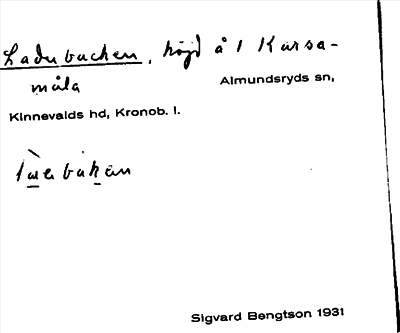 Ladubacken, höjd å 1 Karsa-
måla
Almundsryds sn,
Kinnevalds hd, Kronob. l.
Sigvard Bengtson 1931